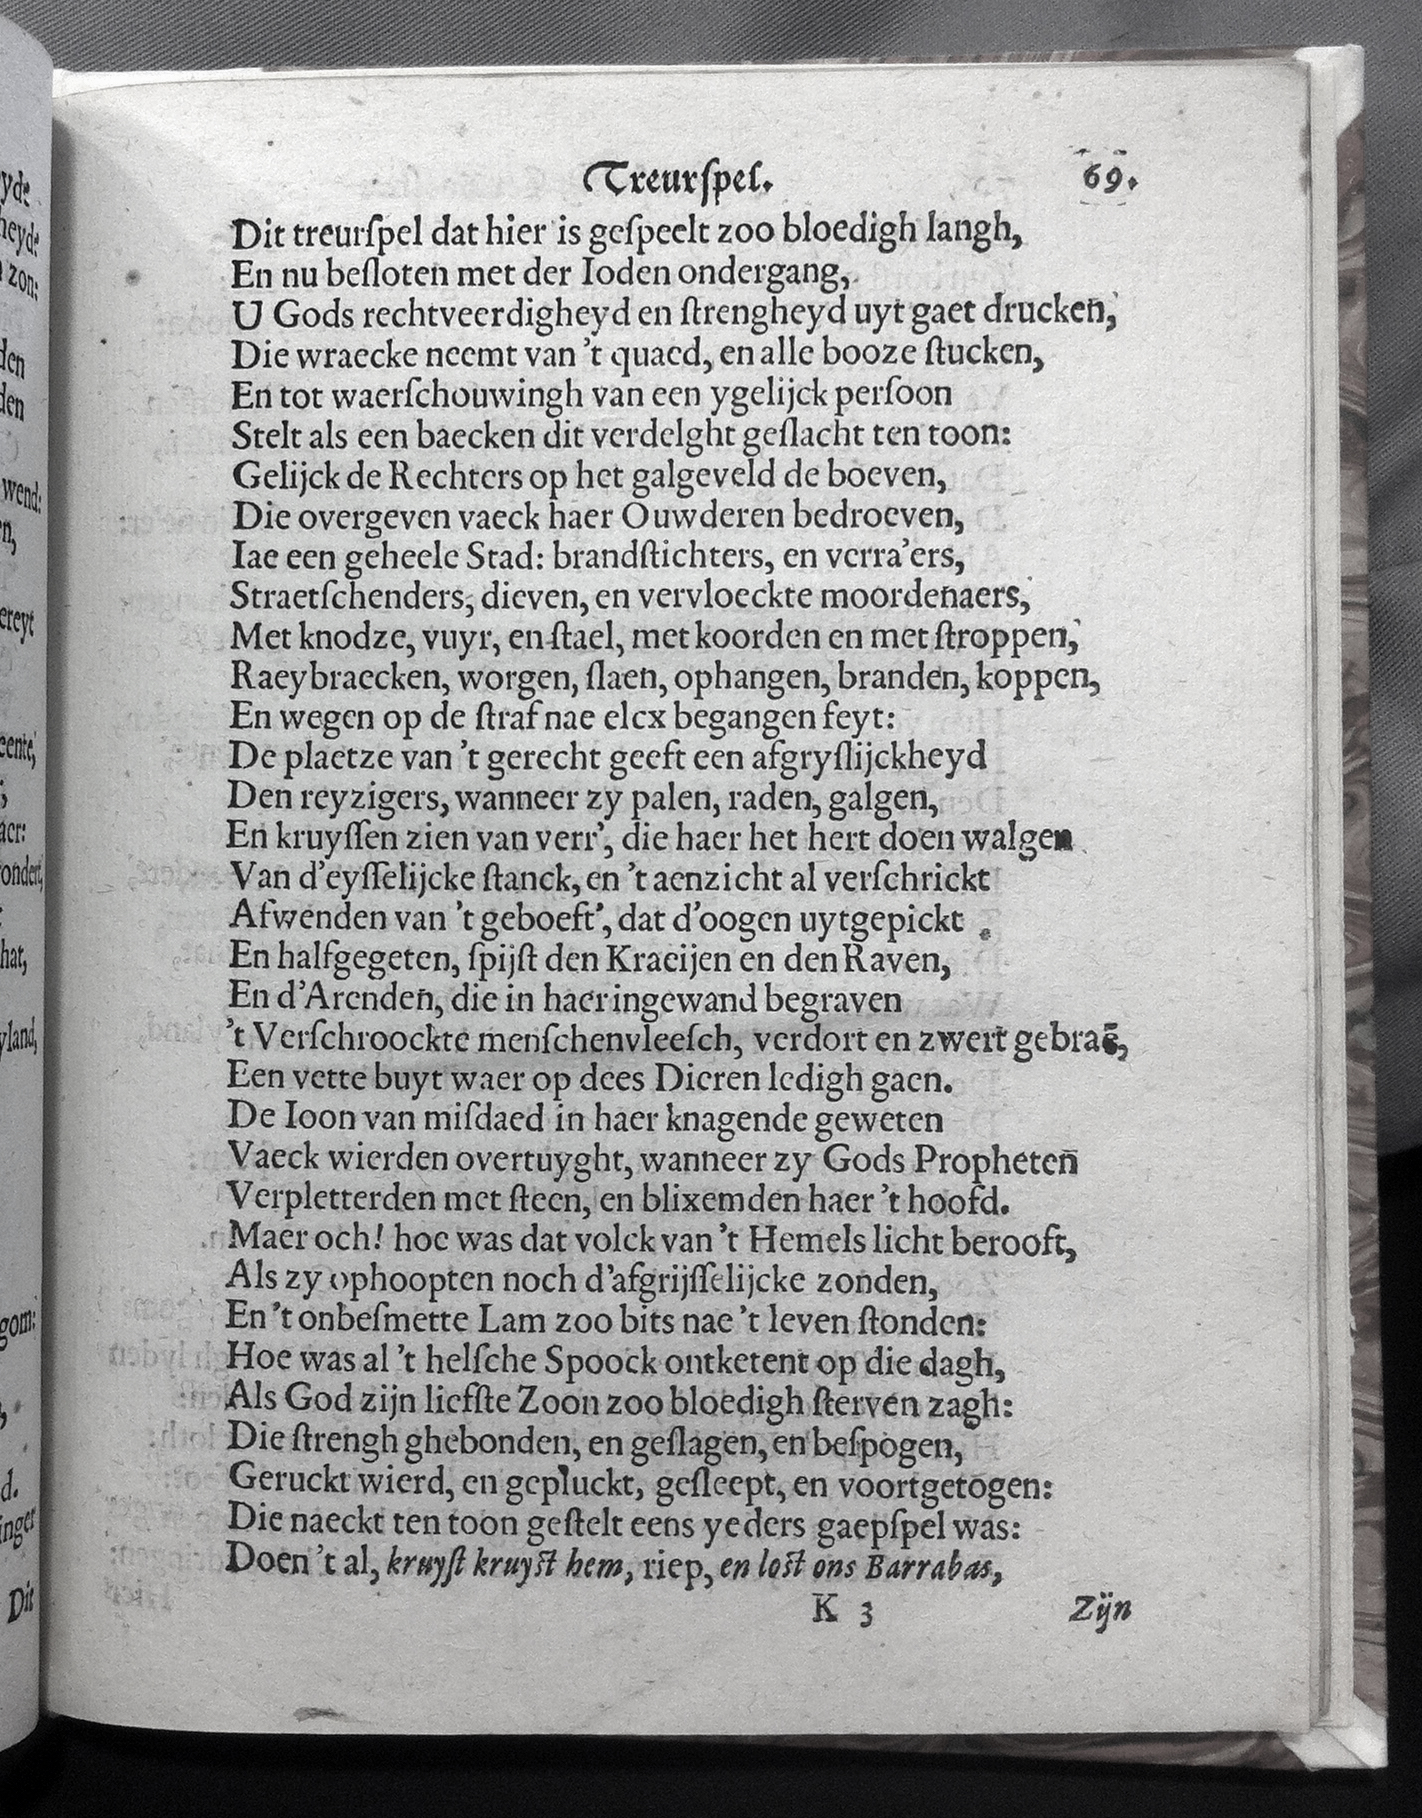 Treurſpel. 69.
Dit treurſpel dat hier is geſpeelt zoo bloedigh langh,
En nu beſloten met der Ioden ondergang,
U Gods rechtveerdigheyd en ſtrengheyd uyt gaet drucken,
Die wraecke neemt van 't quaed, en alle booze ſtucken,
En tot waerſchouwingh van een ygelijck perſoon
Stelt als een baecken dit verdelght geſlacht ten toon:
Gelijck de Rechters op het galgeveld de boeven,
Die overgeven vaeck haer Ouwderen bedroeven,
Iae een geheele Stad: brandſtichters, en verra'ers,
Straetſchenders, dieven, en vervloeckte moordenaers,
Met knodze, vuyr, en ſtael, met koorden en met ſtroppen,
Raeybraecken, worgen, ſlaen, ophangen, branden, koppen,
En wegen op de ſtraf nae elcx begangen feyt:
De plaetze van 't gerecht geeft een afgryſlijckheyd
Den reyzigers, wanneer zy palen, raden, galgen,
En kruyſſen zien van verr', die haer het hert doen walgen
Van d'eyſſelijcke ſtanck, en 't aenzicht al verſchrickt
Afwenden van 't geboeft', dat d'oogen uytgepickt
En halfgegeten, ſpijſt den Kraeijen en den Raven,
En d'Arenden, die in haer ingewand begraven
't Verſchroockte menſchenvleeſch, verdort en zwert gebraē,
Een vette buyt waer op dees Dieren ledigh gaen.
De Ioon van miſdaed in haer knagende geweten
Vaeck wierden overtuyght, wanneer zy Gods Propheten
Verpletterden met ſteen, en blixemden haer 't hoofd.
Maer och! hoe was dat volck van 't Hemels licht berooft,
Als zy ophoopten noch d'afgrijſſelijcke zonden,
En 't onbeſmette Lam zoo bits nae 't leven ſtonden:
Hoe was al 't helſche Spoock ontketent op die dagh,
Als God zijn liefſte Zoon zoo bloedigh ſterven zagh:
Die ſtrengh ghebonden, en geſlagen, en beſpogen,
Geruckt wierd, en gepluckt, geſleept, en voortgetogen:
Die naeckt ten toon geſtelt eens yeders gaepſpel was:
Doen 't al, kruyſt kruyſt hem, riep, en loſt ons Barrabas,
K 3 Zijn